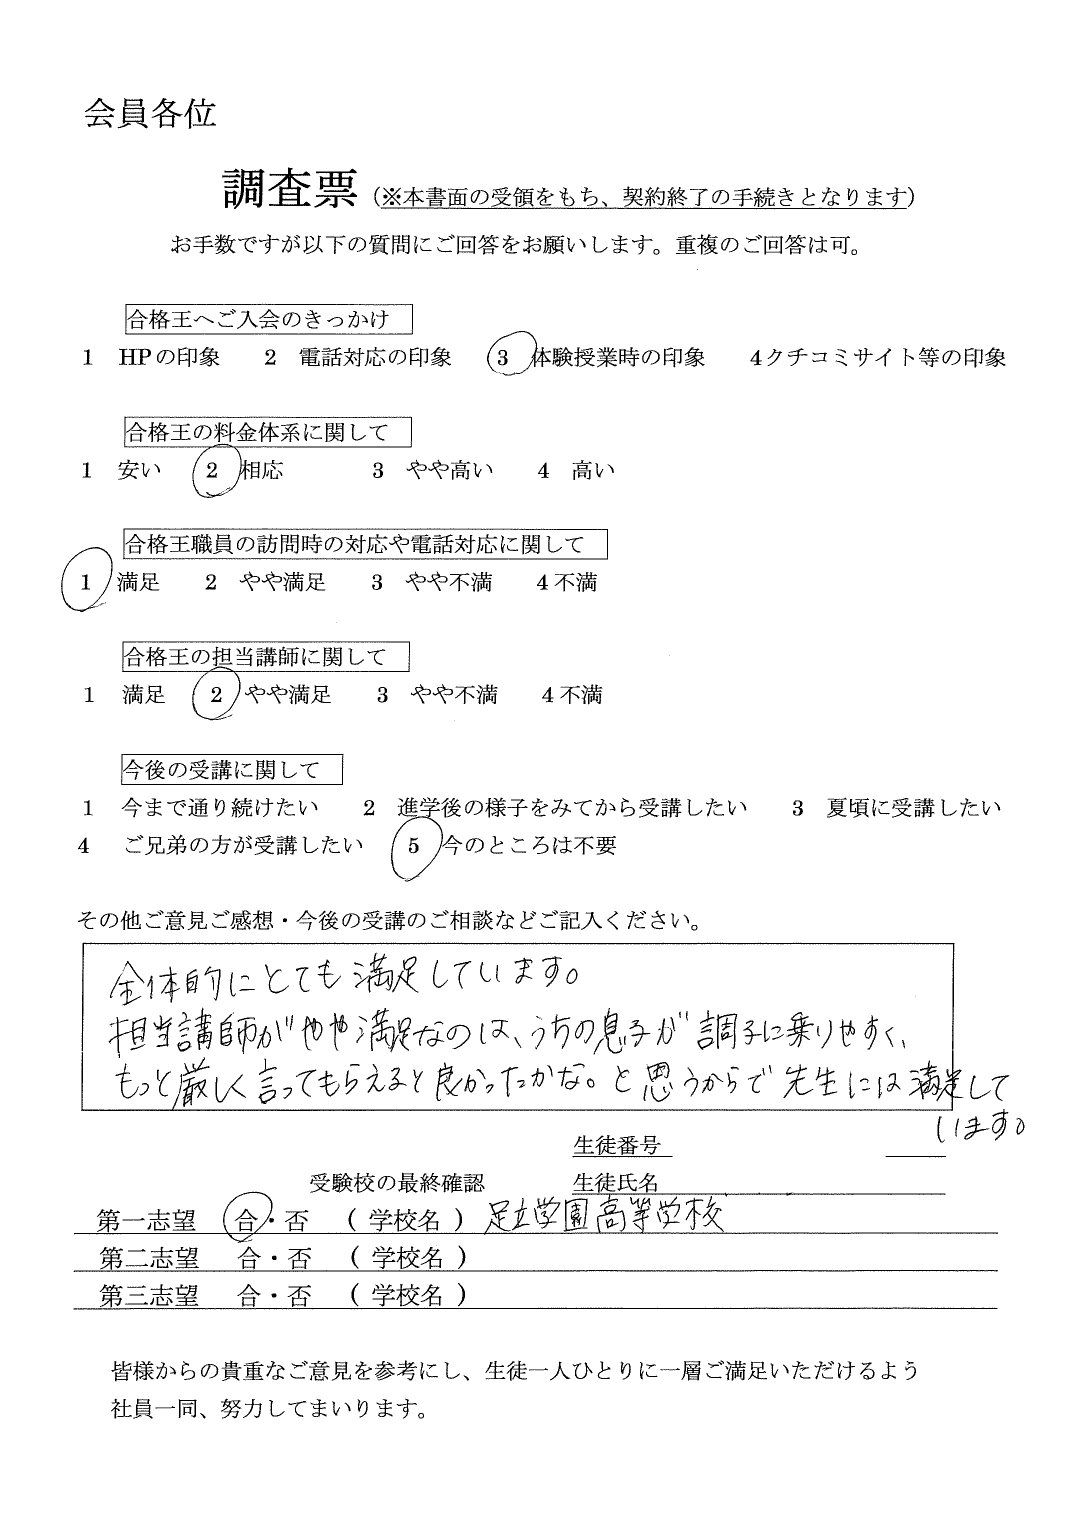 会員各位
調査票（※本書面の受領をもち、契約終了の手続きとなります）
お手数ですが以下の質問にご回答をお願いします。重複のご回答は可。
合格王へご入会のきっかけ
1 HPの印象 2 電話対応の印象 3 体験授業時の印象 4クチコミサイト等の印象
合格王の料金体系に関して
1 安い 2 相応 3 やや高い 4 高い
合格王職員の訪問時の対応や電話対応に関して
1 満足 2 やや満足 3 やや不満 4 不満
合格王の担当講師に関して
1 満足 2 やや満足 3 やや不満 4 不満
今後の受講に関して
1 今まで通り続けたい 2 進学後の様子をみてから受講したい 3 夏頃に受講したい
4 ご兄弟の方が受講したい 5 今のところは不要
その他ご意見ご感想・今後の受講のご相談などご記入ください。
全体的にとても満足しています。
担当講師がやや満足なのは、うちの息子が調子に乗りやすく、
もっと厳しく言ってもらえると良かったかな。と思うからで先生には満足して
います。
生徒番号
受験校の最終確認 生徒氏名
第一志望 合・否 （ 学校名 ） 足立学園高等学校
第二志望 合・否 （ 学校名 ）
第三志望 合・否 （ 学校名 ）
皆様からの貴重なご意見を参考にし、生徒一人ひとりに一層ご満足いただけるよう
社員一同、努力してまいります。